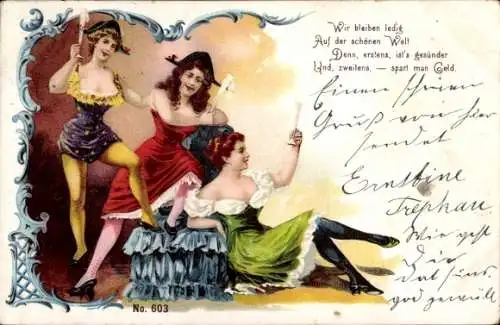 Wir bleiben ledig
Auf der schönen Welt
Denn, erstens, ist's gesünder
Und, zweitens, — spart man Geld.
Einen
Gruß von hier
sendet
Ernstine
Trephau
Wie geht
Dir
No. 603